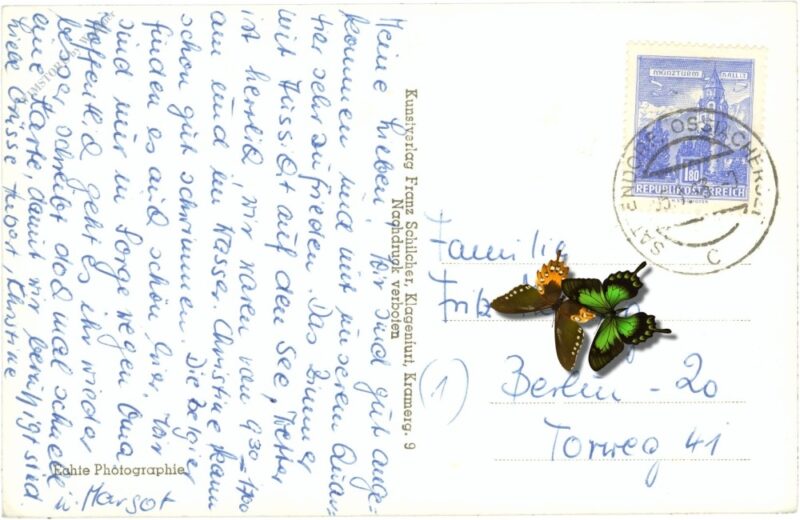 Meine Lieben! Wir sind gut ange-
kommen und mit unserem Quar-
tier sehr zufrieden. Das Zimmer
mit Aussicht auf den See, Wetter
ist herrlich, wir waren von 9³⁰ - 17⁰⁰
am und im Wasser. Christine kann
schon gut schwimmen. Die Belgier
finden es auch schön hier. Wir
sind nur in Sorge wegen Oma
Hoffentlich geht es ihr wieder
besser, schreibt doch mal schnell
eine Karte, damit wir beruhigt sind.
Liebe Grüsse Hubert, Christine
u. Margot
Echte Photographie
Kunstverlag Franz Schilcher, Klagenfurt, Kramerg. 9
Nachdruck verboten
MÜNZTURM HALL I. T.
1.80
REPUBLIK ÖSTERREICH
SATTENDORF OSSIACHERSEE
C
Familie
Fritz
(1) Berlin - 20
Torweg 41